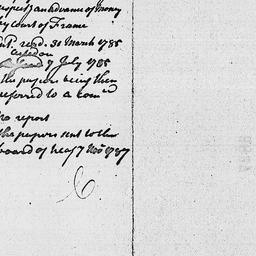 respectg an advance of money
by court of France
read. 31 March 1785
7 July 1785
the papers being then
referred to a comd
no report
the papers sent to the
board of treasy Nov 1787